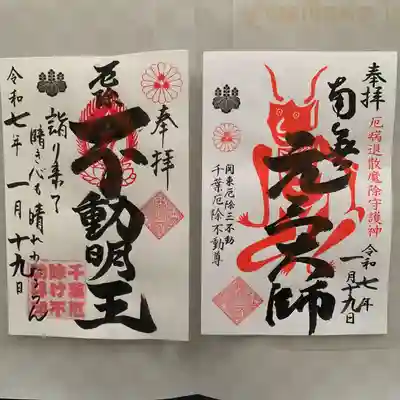 奉拝
厄除
不動明王
詣り来て
暗き心も晴れ
令和七年
一月十九日
千葉厄
除け不
動尊
奉拝
厄病退散魔除守護神
南無
元三大師
令和七年
一月十九日
関東厄除三不動
千葉厄除不動尊